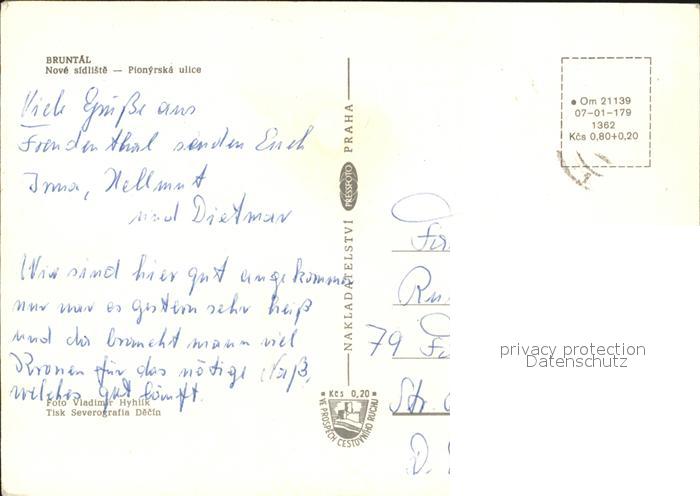 BRUNTÁL
Nové sídliště — Pionýrská ulice
Viele Grüße aus
Freudenthal senden Euch
Irma, Hellmut
und Dietmar
Wir sind hier gut angekommen
nur war es gestern sehr heiß
und da braucht mann viel
Kronen für das nötige Naß,
welches gut
Foto Vladimír Hyhlík
Tisk Severografia Děčín
NAKLADATELSTVÍ PRESSFOTO PRAHA
Kčs 0,20
VE PROSPĚCH CESTOVNÍHO RUCHU
Om 21139
07-01-179
1362
Kčs 0,80+0,20
79
Str.
D.
privacy protection
Datenschutz